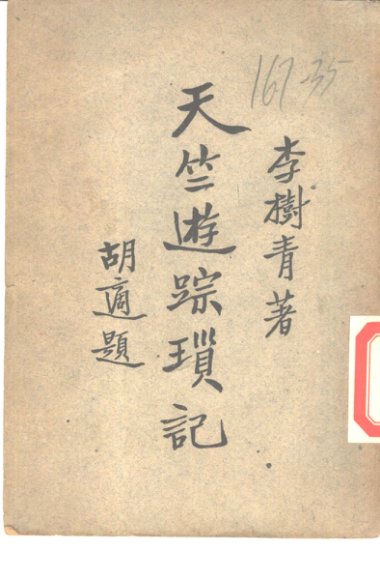 167-35
李樹青著
天竺遊踪瑣記
胡適題